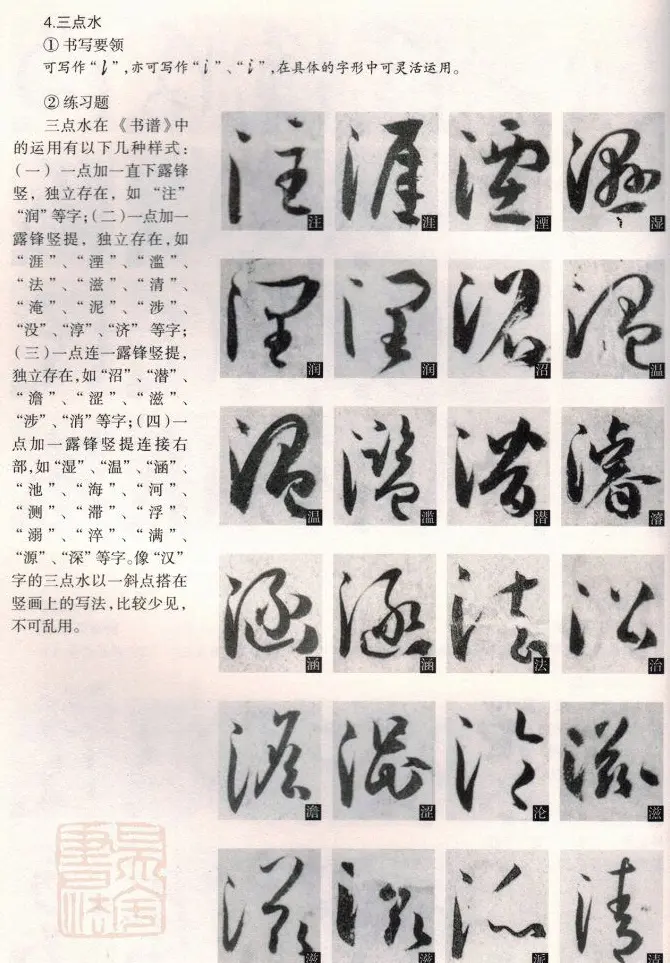 4.三点水
① 书写要领
可写作“氵”,亦可写作“氵”、“氵”,在具体的字形中可灵活运用。
② 练习题
三点水在《书谱》中
的运用有以下几种样式:
(一) 一点加一直下露锋
竖,独立存在,如 “注”
“润”等字;(二)一点加一
露锋竖提,独立存在,如
“涯”、“湮”、“滥”、
“法”、“滋”、“清”、
“淹”、“泥”、“涉”、
“没”、“淳”、“济” 等字;
(三)一点连一露锋竖提,
独立存在,如“沼”、“潜”、
“澹”、“涩”、“滋”、
“涉”、“消”等字;(四)一
点加一露锋竖提连接右
部,如“湿”、“温”、“涵”、
“池”、“海”、“河”、
“测”、“滞”、“浮”、
“溺”、“淬”、“满”、
“源”、“深”等字。像“汉”
字的三点水以一斜点搭在
竖画上的写法,比较少见,
不可乱用。
注 涯 湮 湿
润 润 沼 温
温 滥 潜 濬
涵 涵 法 治
澹 涩 沦 滋
滋 滋 派 清